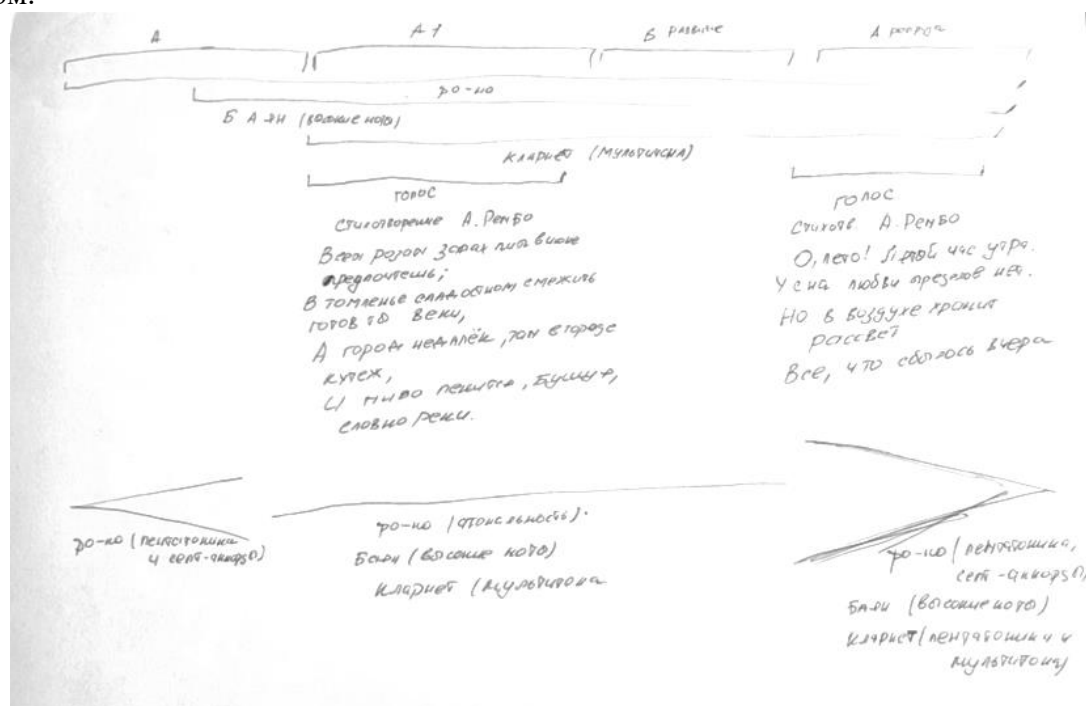 ом.
A
A 1
В развитие
А реприза
ро-но
БАЯН (высокие ноты)
кларнет (мультифония)
голос
Стихотворение А. Рембо
Всем розам запах пива вновь
предпочтешь;
В томленье сладостном смежить
готов ты веки,
А город недалёк, там в городе
кутеж,
И пиво пенится, бушуя,
словно реки.
голос
Стихотв. А. Рембо
О, лето! Пятый час утра.
У сна любви пределов нет.
Но в воздухе хранит
рассвет
Все, что сбылось вчера
ро-но (пентатоника
и септ-аккорды)
ро-но (атональность).
Баян (высокие ноты)
Кларнет (мультитона
ро-но (пентатоника,
септ-аккорды)
БАЯН (высокие ноты)
Кларнет (пентатоники и
мультитоны)